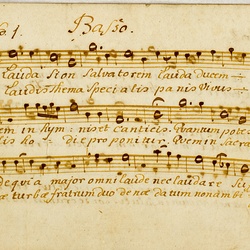 1. Basso.
Lauda Sion Salvatorem lauda ducem
Laudis thema Specialis panis vivus
em in hym: nis et canticis. Quantum pote
lis ho: die proponitur. Quem in Sacra
quia major omni laude nec laudare suf
æ turbæ fratrum duodenæ datum non ambi